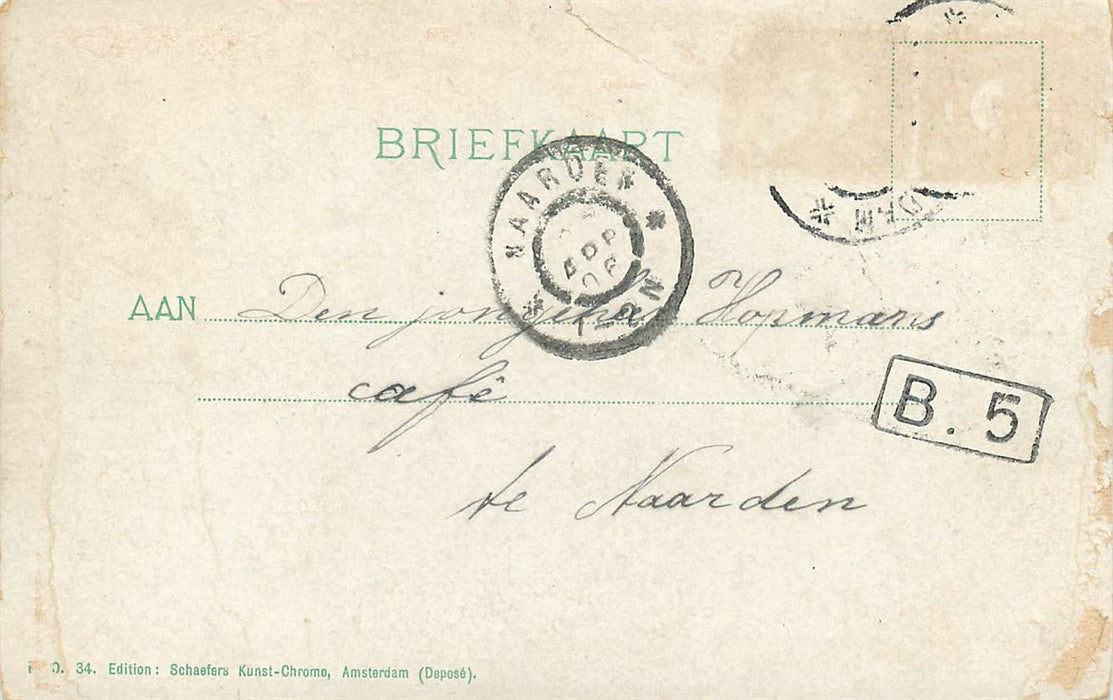 BRIEFKAART
NAARDEN
APR
06
1-2N
DAM
AAN Den jongeheer Hopmans
café
B. 5
te Naarden
34. Edition: Schaefers Kunst-Chromo, Amsterdam (Deposé).